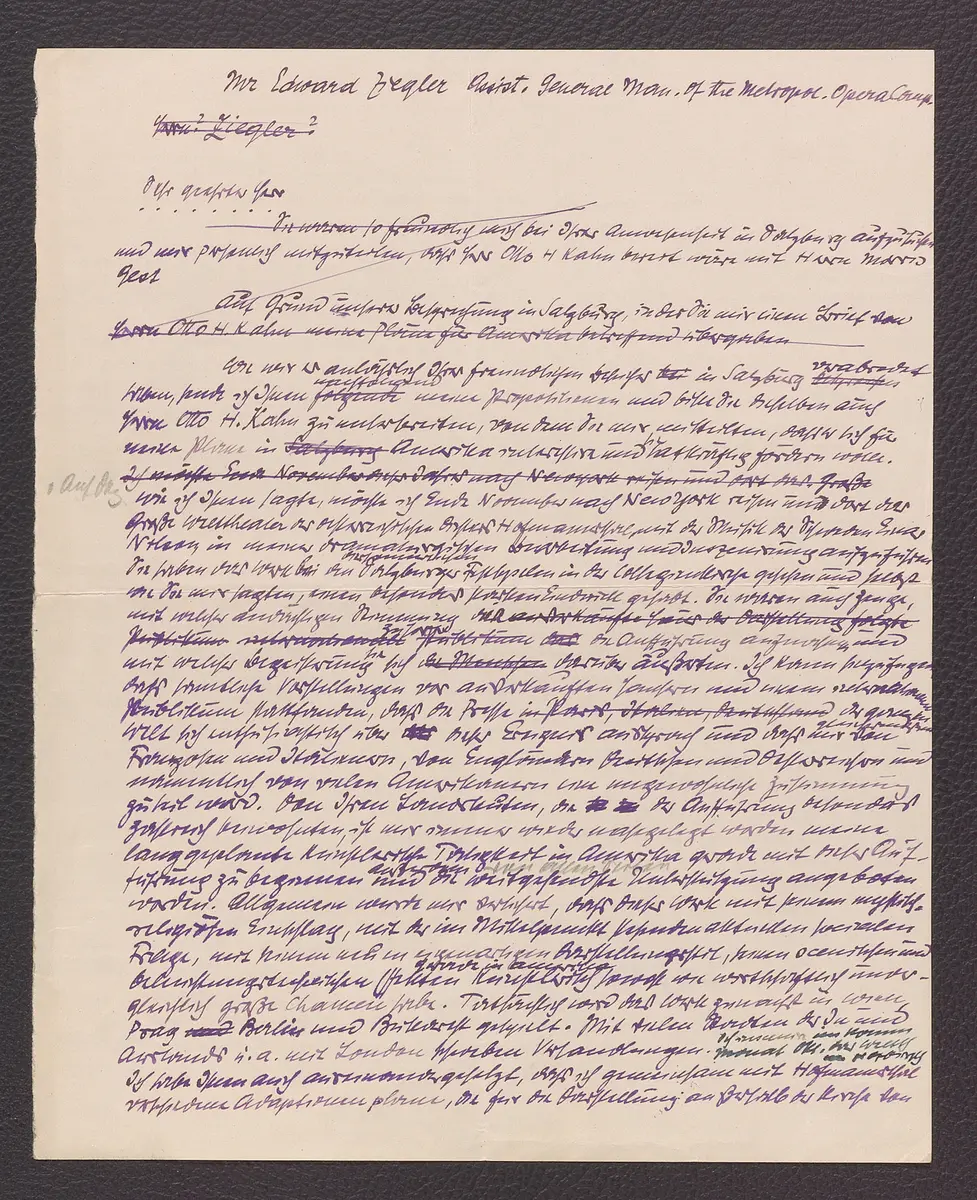 Mr Edward Ziegler Assist. General Man. of the Metropol. Opera Comp.
Herrn? Ziegler?
Sehr geehrter Herr
Sie waren so freundlich mich bei Ihrer Anwesenheit in Salzburg aufzusuchen
und mir persönlich mitzuteilen, dass Herr Otto H Kahn bereit wäre mit Herrn Morris
Gest
Auf Grund unserer Besprechung in Salzburg, in der Sie mir einen Brief von
Herrn Otto H Kahn meine Pläne für Amerika betreffend übergeben
Wie wir es anlässlich Ihres freundlichen Besuches bei in Salzburg verabredet
haben, sende ich Ihnen folgende meine Propositionen und bitte Sie dieselben auch
Herrn Otto H. Kahn zu unterbreiten, von dem Sie mir mitteilten, dass er sich für
meine Pläne in Salzburg Amerika interessiere und sie tatkräftig fördern wolle.
Ich möchte Ende November dieses Jahres nach Newyork reisen und dort das Große
Wie ich Ihnen sagte, möchte ich Ende November nach NewYork reisen und dort das
Große Welttheater des österreichischen Dichters Hofmannsthal, mit der Musik des Schweden Einar
Nilson in meiner dramaturgischen Bearbeitung und Inszenierung aufzuführen
Sie haben das Werk bei den Salzburger Festspielen in der Collegienkirche gesehen und selbst
wie Sie mir sagten, einen besonders starken Eindruck gehabt. Sie waren auch Zeuge,
mit welcher andächtigen Stimmung das ausverkaufte Haus der Darstellung folgte
Publikum die Aufführung aufnahm, und
mit welcher Begeisterung sie sich die Menschen darüber äußerten. Ich kann hinzufügen
dass sämtliche Vorstellungen vor ausverkauften Häusern und einem internationalen
Publikum stattfanden, dass die Presse in Paris, Italien, Deutschland der ganzen
Welt sich enthusiastisch über dieses Ereignis aussprach und dass mir von
Franzosen und Italienern, von Engländern Deutschen und Österreichern und
namentlich von vielen Amerikanern eine ungewöhnliche Zustimmung
zuteil ward. Von Ihren Landsleuten, die der Aufführung besonders
zahlreich beiwohnten, ist mir immer wieder nahegelegt worden meine
lang geplante künstlerische Tätigkeit in Amerika gerade mit dieser Auf-
führung zu beginnen und die weitgehendste Unterstützung angeboten
worden. Allgemein wurde mir versichert, dass dieses Werk mit seinem mystisch-
religiösen Einschlag, mit der im Mittelpunkt stehenden aktuellen socialen
Frage, mit seinem neuen eigenartigen Darstellungsstil, seinen scenischen und
beleuchtungstechnischen gerade in Amerika künstlerisch sowohl wie wirtschaftlich unver-
gleichlich große Chancen habe. Tatsächlich wird das Werk demnächst in Wien
Prag und Berlin und Bukarest gespielt. Mit vielen Städten des In und
Auslands u. a. mit London schweben Verhandlungen.
Ich habe Ihnen auch auseinandergesetzt, dass ich gemeinsam mit Hofmannsthal
verschiedene Adaptionen plane, die für die Darstellung außerhalb der Kirche von